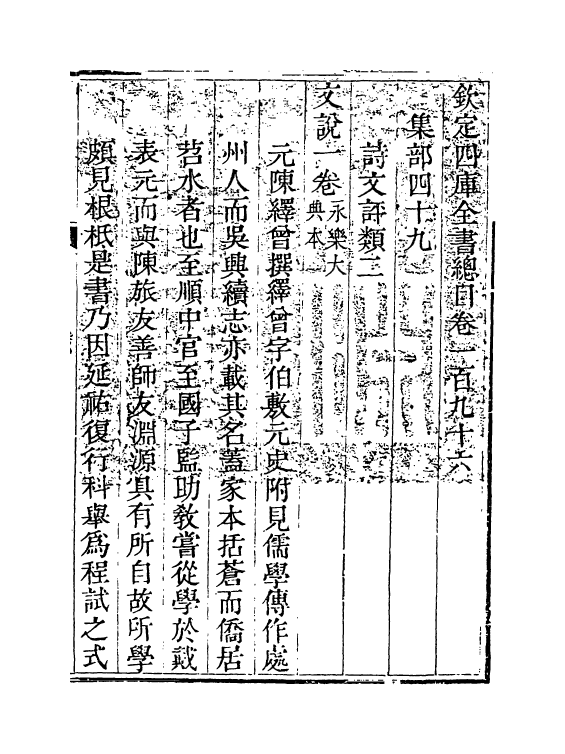 欽定四庫全書總目卷一百九十六
集部四十九
詩文評類二
文說一卷 永樂大典本
元陳繹曾撰繹曾字伯敷元史附見儒學傳作處
州人而吳興續志亦載其名蓋家本括蒼而僑居
苕水者也至順中官至國子監助教嘗從學於戴
表元而與陳旅友善師友淵源具有所自故所學
頗見根柢是書乃因延祐復行科舉為程試之式